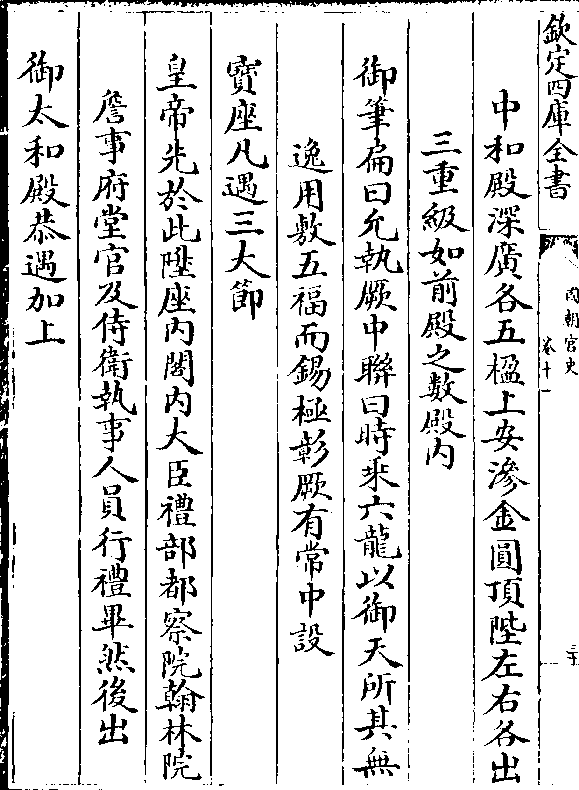 欽定四庫全書
國朝宮史
卷十一
三十
中和殿深廣各五楹上安滲金圓頂陛左右各出
三重級如前殿之數殿内
御筆扁曰允執厥中聯曰時乘六龍以御天所其無
逸用敷五福而錫極彰厥有常中設
寶座凡遇三大節
皇帝先於此陞座内閣内大臣禮部都察院翰林院
詹事府堂官及侍衛執事人員行禮畢然後出
御太和殿恭遇加上